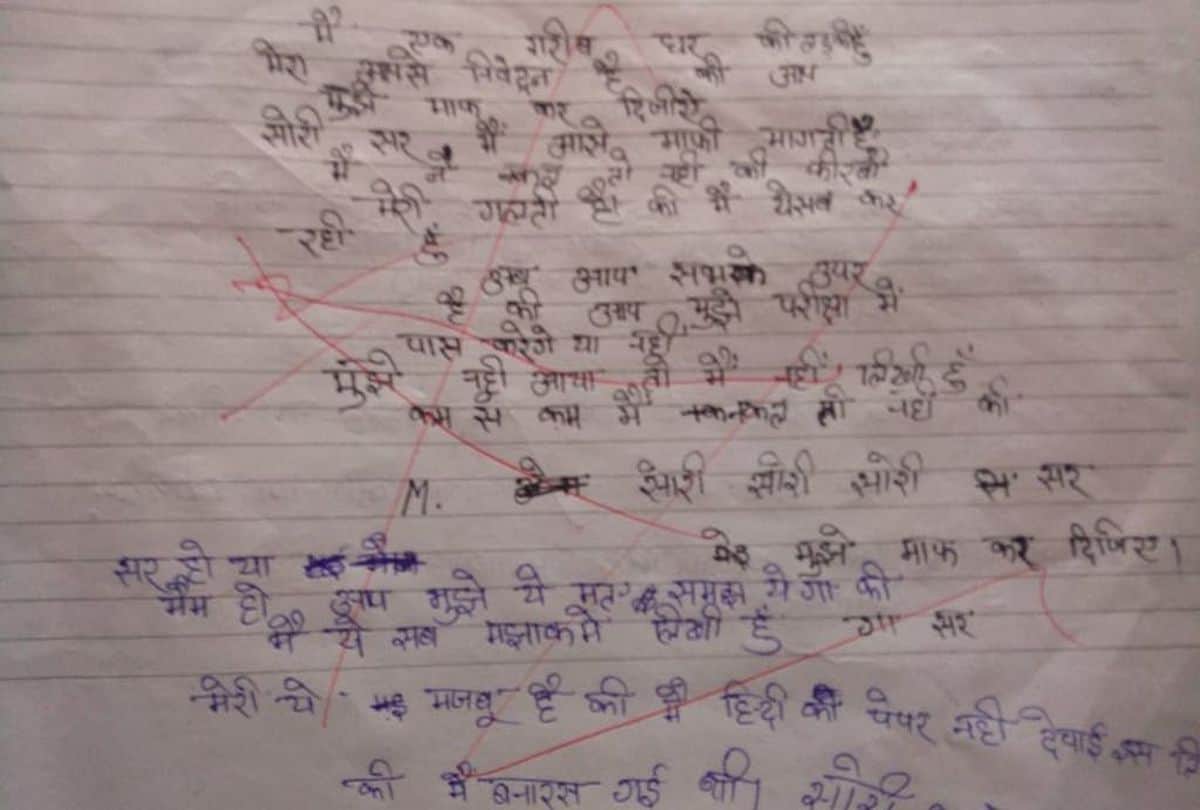 मैं एक गरीब घर की लडकी हुँ
मेरा आपसे निवेदन है की आप
मुझे माफ कर दिजीऐ
सोरी सर मैं आपसे माफी मागती हुँ
मैं ने नकल तो नही की
मेरी गलती है की मैं येसब कर
रही हुँ
अब आप सबके उपर
है की आप मुझे परीक्षा में
पास करेगे या नही
मुझे नही आया तो मैं नहीं लिखी हुँ
कम स कम मैं नकल तो नही की
M. सोरी सोरी सोरी स सर
मुझे माफ कर दिजिए।
सर हो या
मैम हो आप मुझे ये मत समझ ये गा की
मैं ये सब मझाक में लिखी हुँ गा सर
मेरी ये मजबू है की मैं हिन्दी की पेपर नही देपाई इस
की मैं बनारस गई थी। सोरी